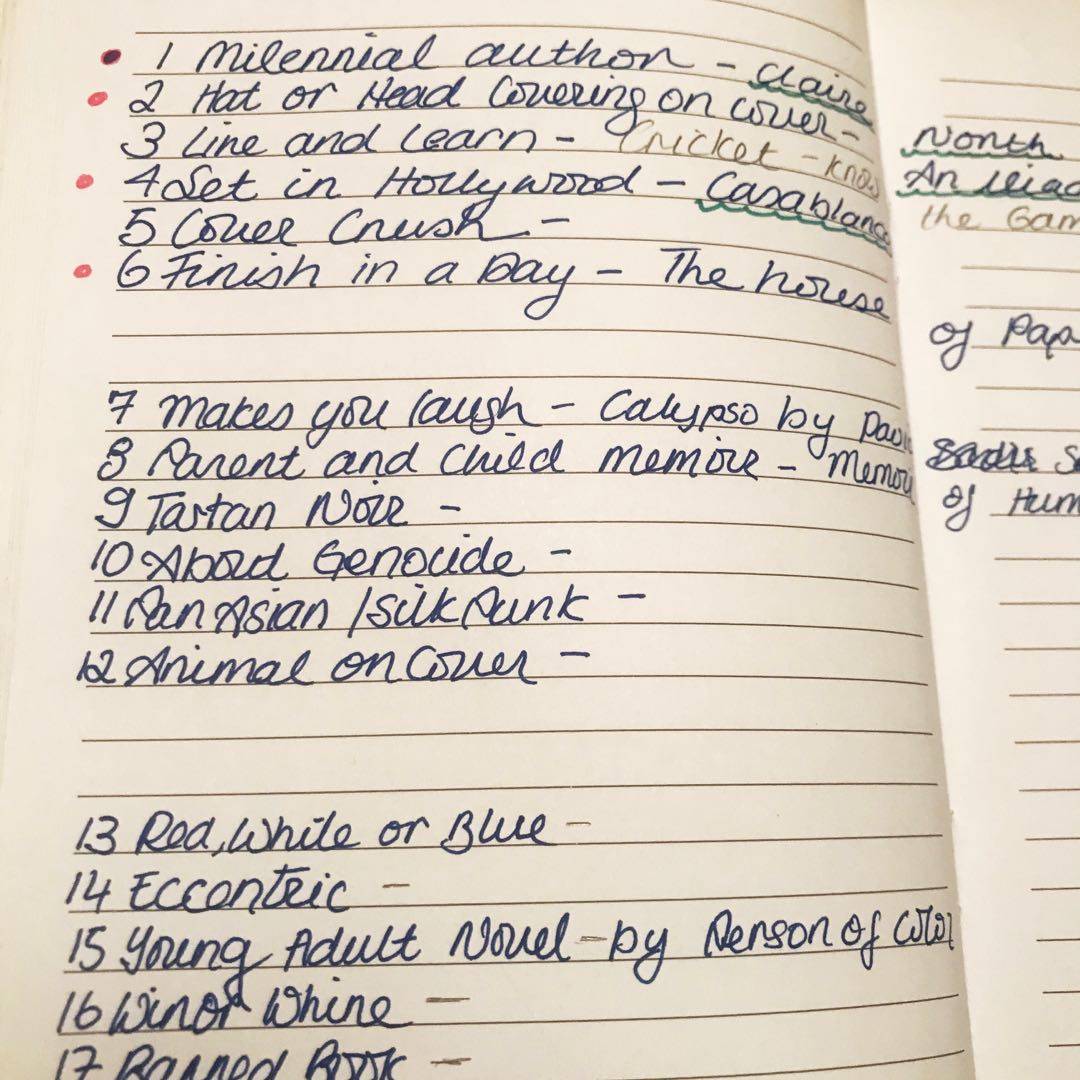 1 Milennial author - Claire
2 Hat or Head Covering on cover -
North
3 Line and Learn - Cricket - know
4 Set in Hollywood - Casablanca
An Iliad
the Gam
5 Cover Crush -
6 Finish in a Day - The house
of Pap
7 makes you laugh - Calypso by Davi
8 Parent and Child memoir - Memoi
9 Tartan Noir -
of Hum
10 About Genocide -
11 Pan Asian / Silk Punk -
12 Animal on Cover -
13 Red, White or Blue -
14 Eccentric -
15 Young Adult Novel - by Person of Color
16 Win or Whine -
17 Banned Book -